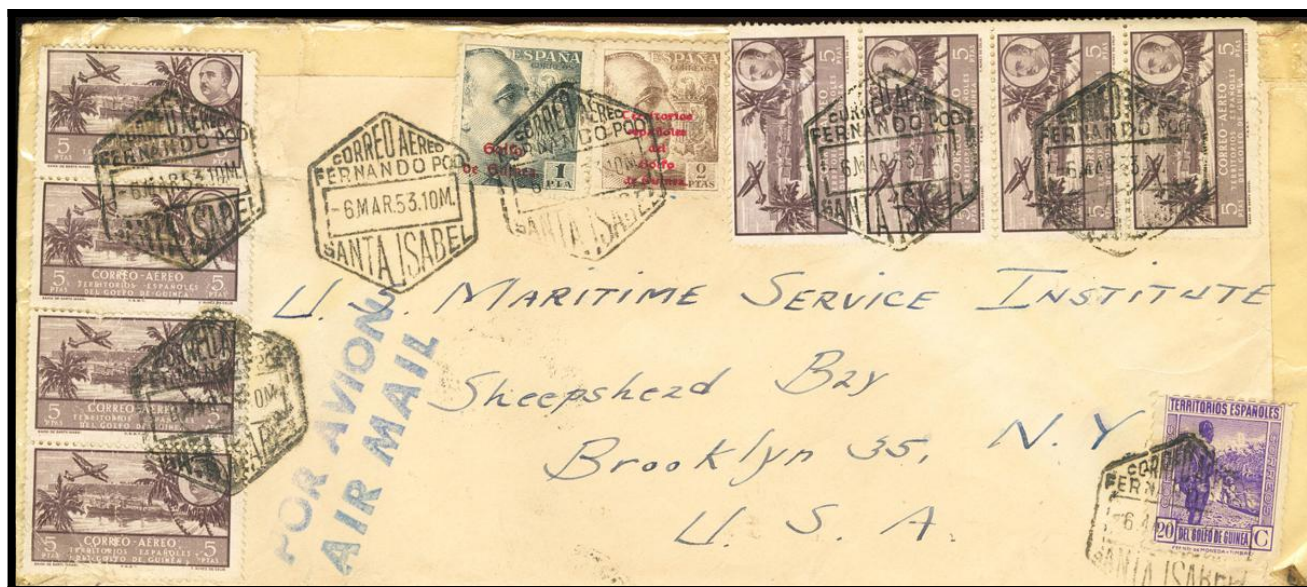 5 PTAS
CORREO AEREO
FERNANDO POO
-6 MAR.53.10M.
SANTA ISABEL
5 PTS CORREO-AEREO 5 PTAS
TERRITORIOS ESPAÑOLES
DEL GOLFO DE GUINEA
5 PTS CORREO-AEREO 5 PTAS
TERRITORIOS ESPAÑOLES
DEL GOLFO DE GUINEA
5 PTAS CORREO-AEREO 5 PTAS
TERRITORIOS ESPAÑOLES
DEL GOLFO DE GUINEA
CORREO AEREO
FERNANDO POO
-6 MAR.53.10M.
SANTA ISABEL
ESPAÑA
Golfo
De Guinea.
1
PTA
ESPAÑA
CORREOS
Territorios
españoles
del
Golfo
de Guinea.
2
PTAS
CORREO AEREO
SANTA ISABEL
5 PTAS
5 PTAS
5 PTAS
5 PTAS
CORREO AEREO
FERNANDO POO
-6 MAR.53.10M.
SANTA ISABEL
U. S. MARITIME SERVICE INSTITUTE
Sheepshead Bay
Brooklyn 35, N.Y
U. S. A.
POR AVION
AIR MAIL
TERRITORIOS ESPAÑOLES
20 DEL GOLFO DE GUINEA C
CORREO
SANTA ISABEL